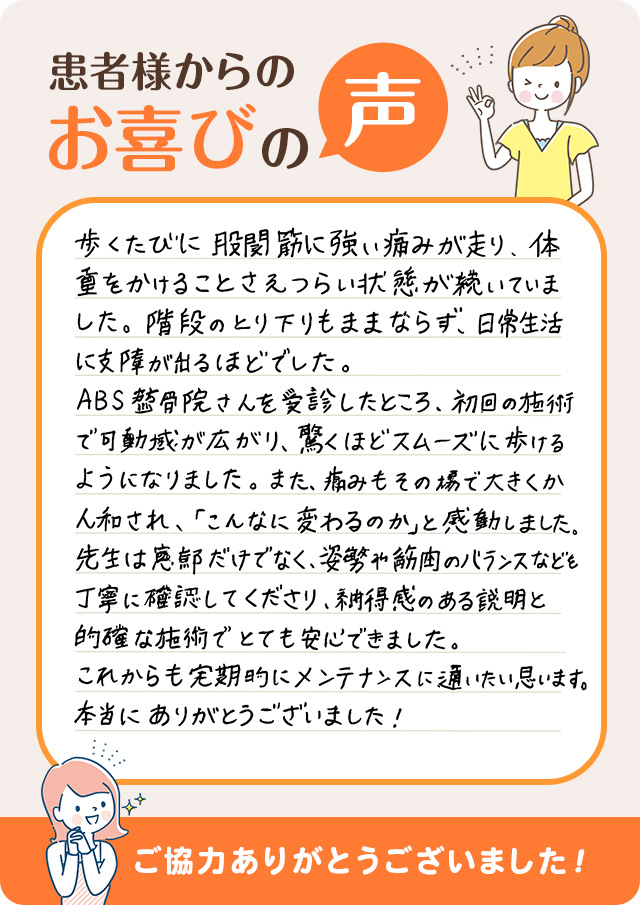 患者様からの
お喜びの声
歩くたびに股関筋に強い痛みが走り、体
重をかけることさえつらい状態が続いていま
した。階段のとり下りもままならず、日常生活
に支障が出るほどでした。
ABS整骨院さんを受診したところ、初回の施術
で可動域が広がり、驚くほどスムーズに歩ける
ようになりました。また、痛みもその場で大きくか
人和され、「こんなに変わるのか」と感動しました。
先生は患部だけでなく、姿勢や筋肉のバランスなどを
丁寧に確認してくださり、納得感のある説明と
的確な施術でとても安心できました。
これからも定期的にメンテナンスに通いたい思います。
本当にありがとうございました!
ご協力ありがとうございました!